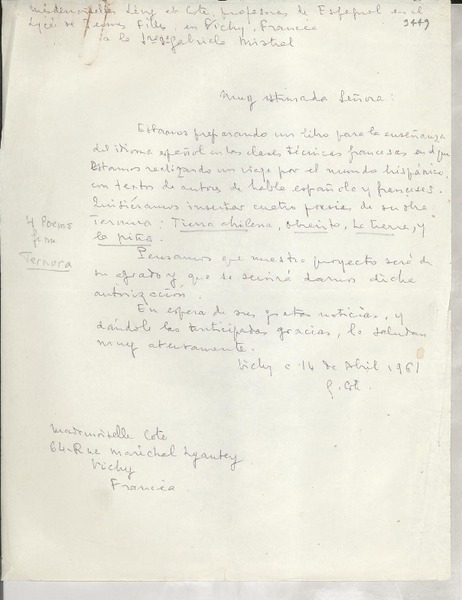 Mademoiselles Lény et Cote, profesoras de Español en el
Lycée de Jeunes Filles, en Vichy, Francia
a la Sra Gabriela Mistral
3449
Muy estimada Señora:
Estamos preparando un libro para la enseñanza
del idioma español en las clases técnicas francesas en el que
Estamos realizando un viaje por el mundo hispánico
con textos de autores de habla española y franceses.
Quisiéramos insertar cuatro poesías de su obra
Ternura: Tierra chilena, obrerito, La tierra, y
la piña.
4 Poems
from
Ternura
Pensamos que nuestro proyecto será de
su agrado y que se servirá darnos dicha
autorización.
En espera de sus gratas noticias, y
dándole las anticipadas gracias, le saludan
muy atentamente.
Vichy a 14 de Abril 1961
Mademoiselle Cote
64-Rue Maréchal Lyautey
Vichy
Francia